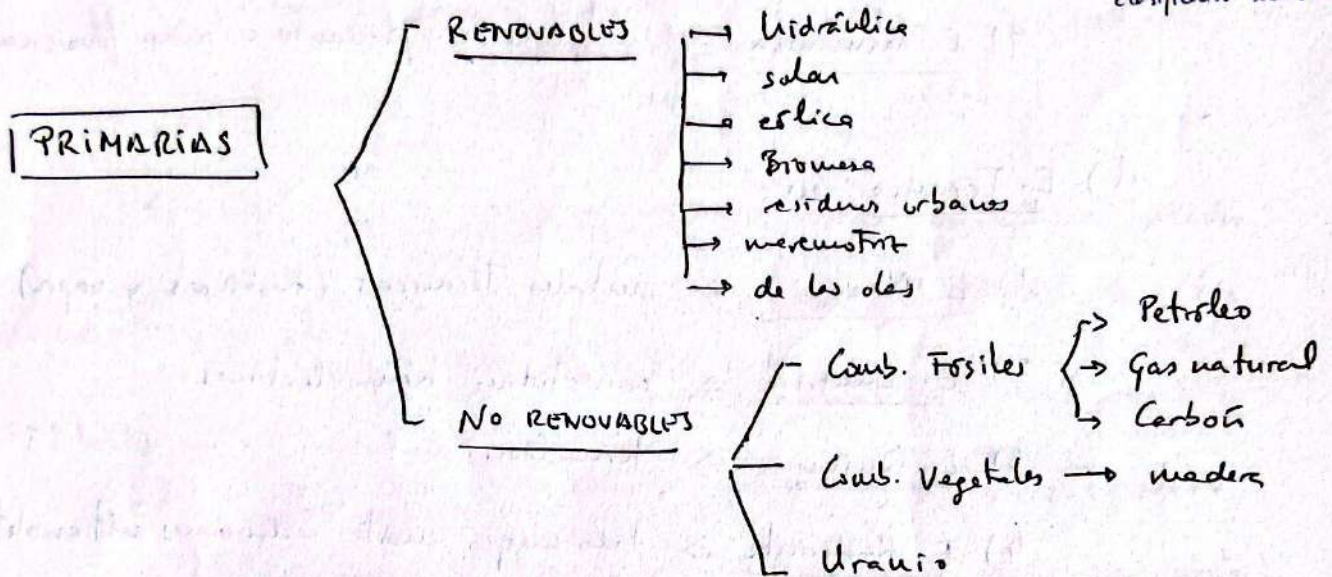 RENOVABLES
→ hidráulica
→ solar
→ eólica
→ Biomasa
→ residuos urbanos
→ maremotriz
→ de las olas
PRIMARIAS
NO RENOVABLES
Comb. Fósiles
→ Petróleo
→ Gas natural
→ Carbón
Comb. Vegetales → madera
Uranio